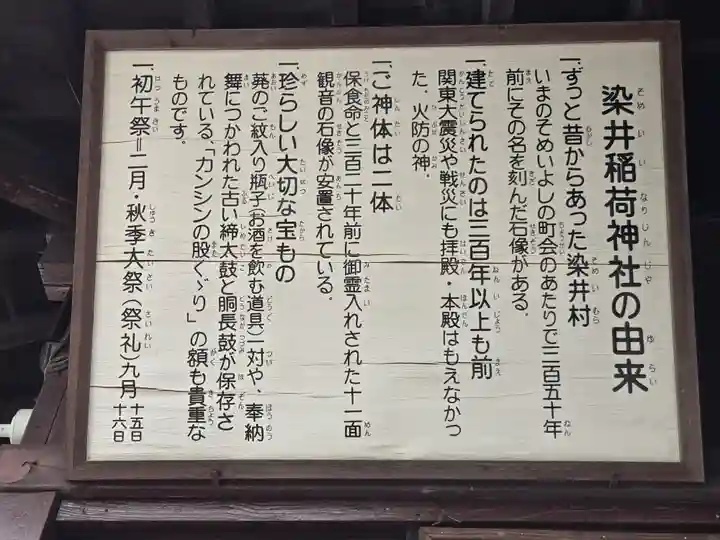 染井稲荷神社の由来
一、ずっと昔からあった染井村
いまのそめいよしの町会のあたりで三百五十年
前にその名を刻んだ石像がある。
一、建てられたのは三百年以上も前
関東大震災や戦災にも拝殿・本殿はもえなかっ
た。火防の神。
一、ご神体は二体
保食命と三百二十年前に御霊入れされた十一面
観音の石像が安置されている。
一、珍らしい大切な宝もの
葵のご紋入り瓶子(お酒を飲む道具)一対や、奉納
舞につかわれた古い締太鼓と胴長鼓が保存さ
れている、「カンシンの股くゞり」の額も貴重な
ものです。
一、初午祭=二月・秋季大祭(祭礼)九月十五日十六日